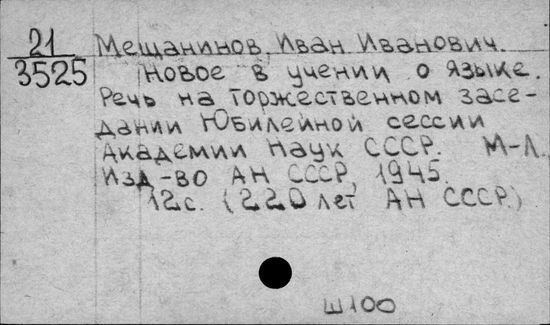 21 Мещанинов, Иван Иванович.
3525 Новое в учении о языке.
Речь на торжественном засе-
дании Юбилейной сессии
Академии Наук СССР. М-Л.
Изд-во АН СССР, 1945.
12с. (220 лет АН СССР.)
Ш100